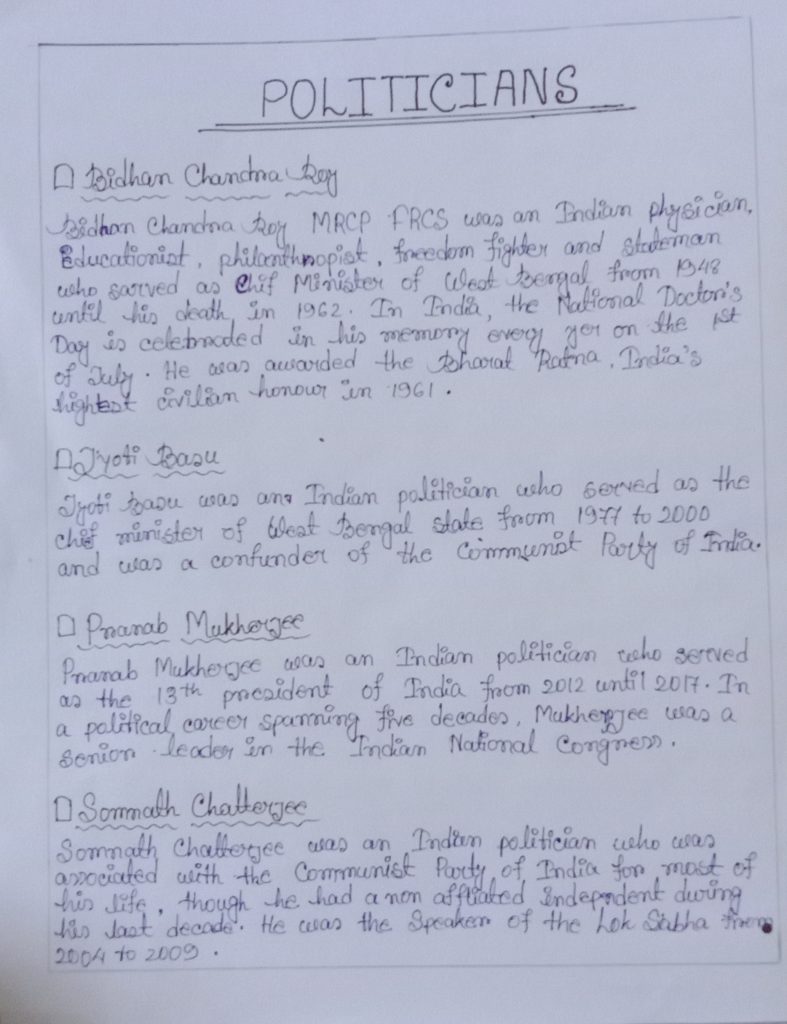 POLITICIANS
Bidhan Chandra Roy
Bidhan Chandra Roy MRCP FRCS was an Indian physician,
Educationist, philanthropist, freedom fighter and stateman
who sarved as Chif Minister of West Bengal from 1948
until his death in 1962. In India, the National Doctor's
Day is celebraded in his memory every yer on the 1st
of July. He was awarded the Bharat Ratna, India's
highest civilian honour in 1961.
Jyoti Basu
Jyoti Basu was an Indian politician who served as the
chif minister of West Bengal state from 1977 to 2000
and was a confunder of the Communist Party of India.
Pranab Mukherjee
Pranab Mukherjee was an Indian politician who served
as the 13th president of India from 2012 until 2017. In
a political career spanning five decades, Mukherjee was a
senior leader in the Indian National Congress.
Somnath Chatterjee
Somnath Chatterjee was an Indian politician who was
associated with the Communist Party of India for most of
his life, though he had a non affliated independent during
his last decade. He was the Speaker of the Lok Sabha from
2004 to 2009.